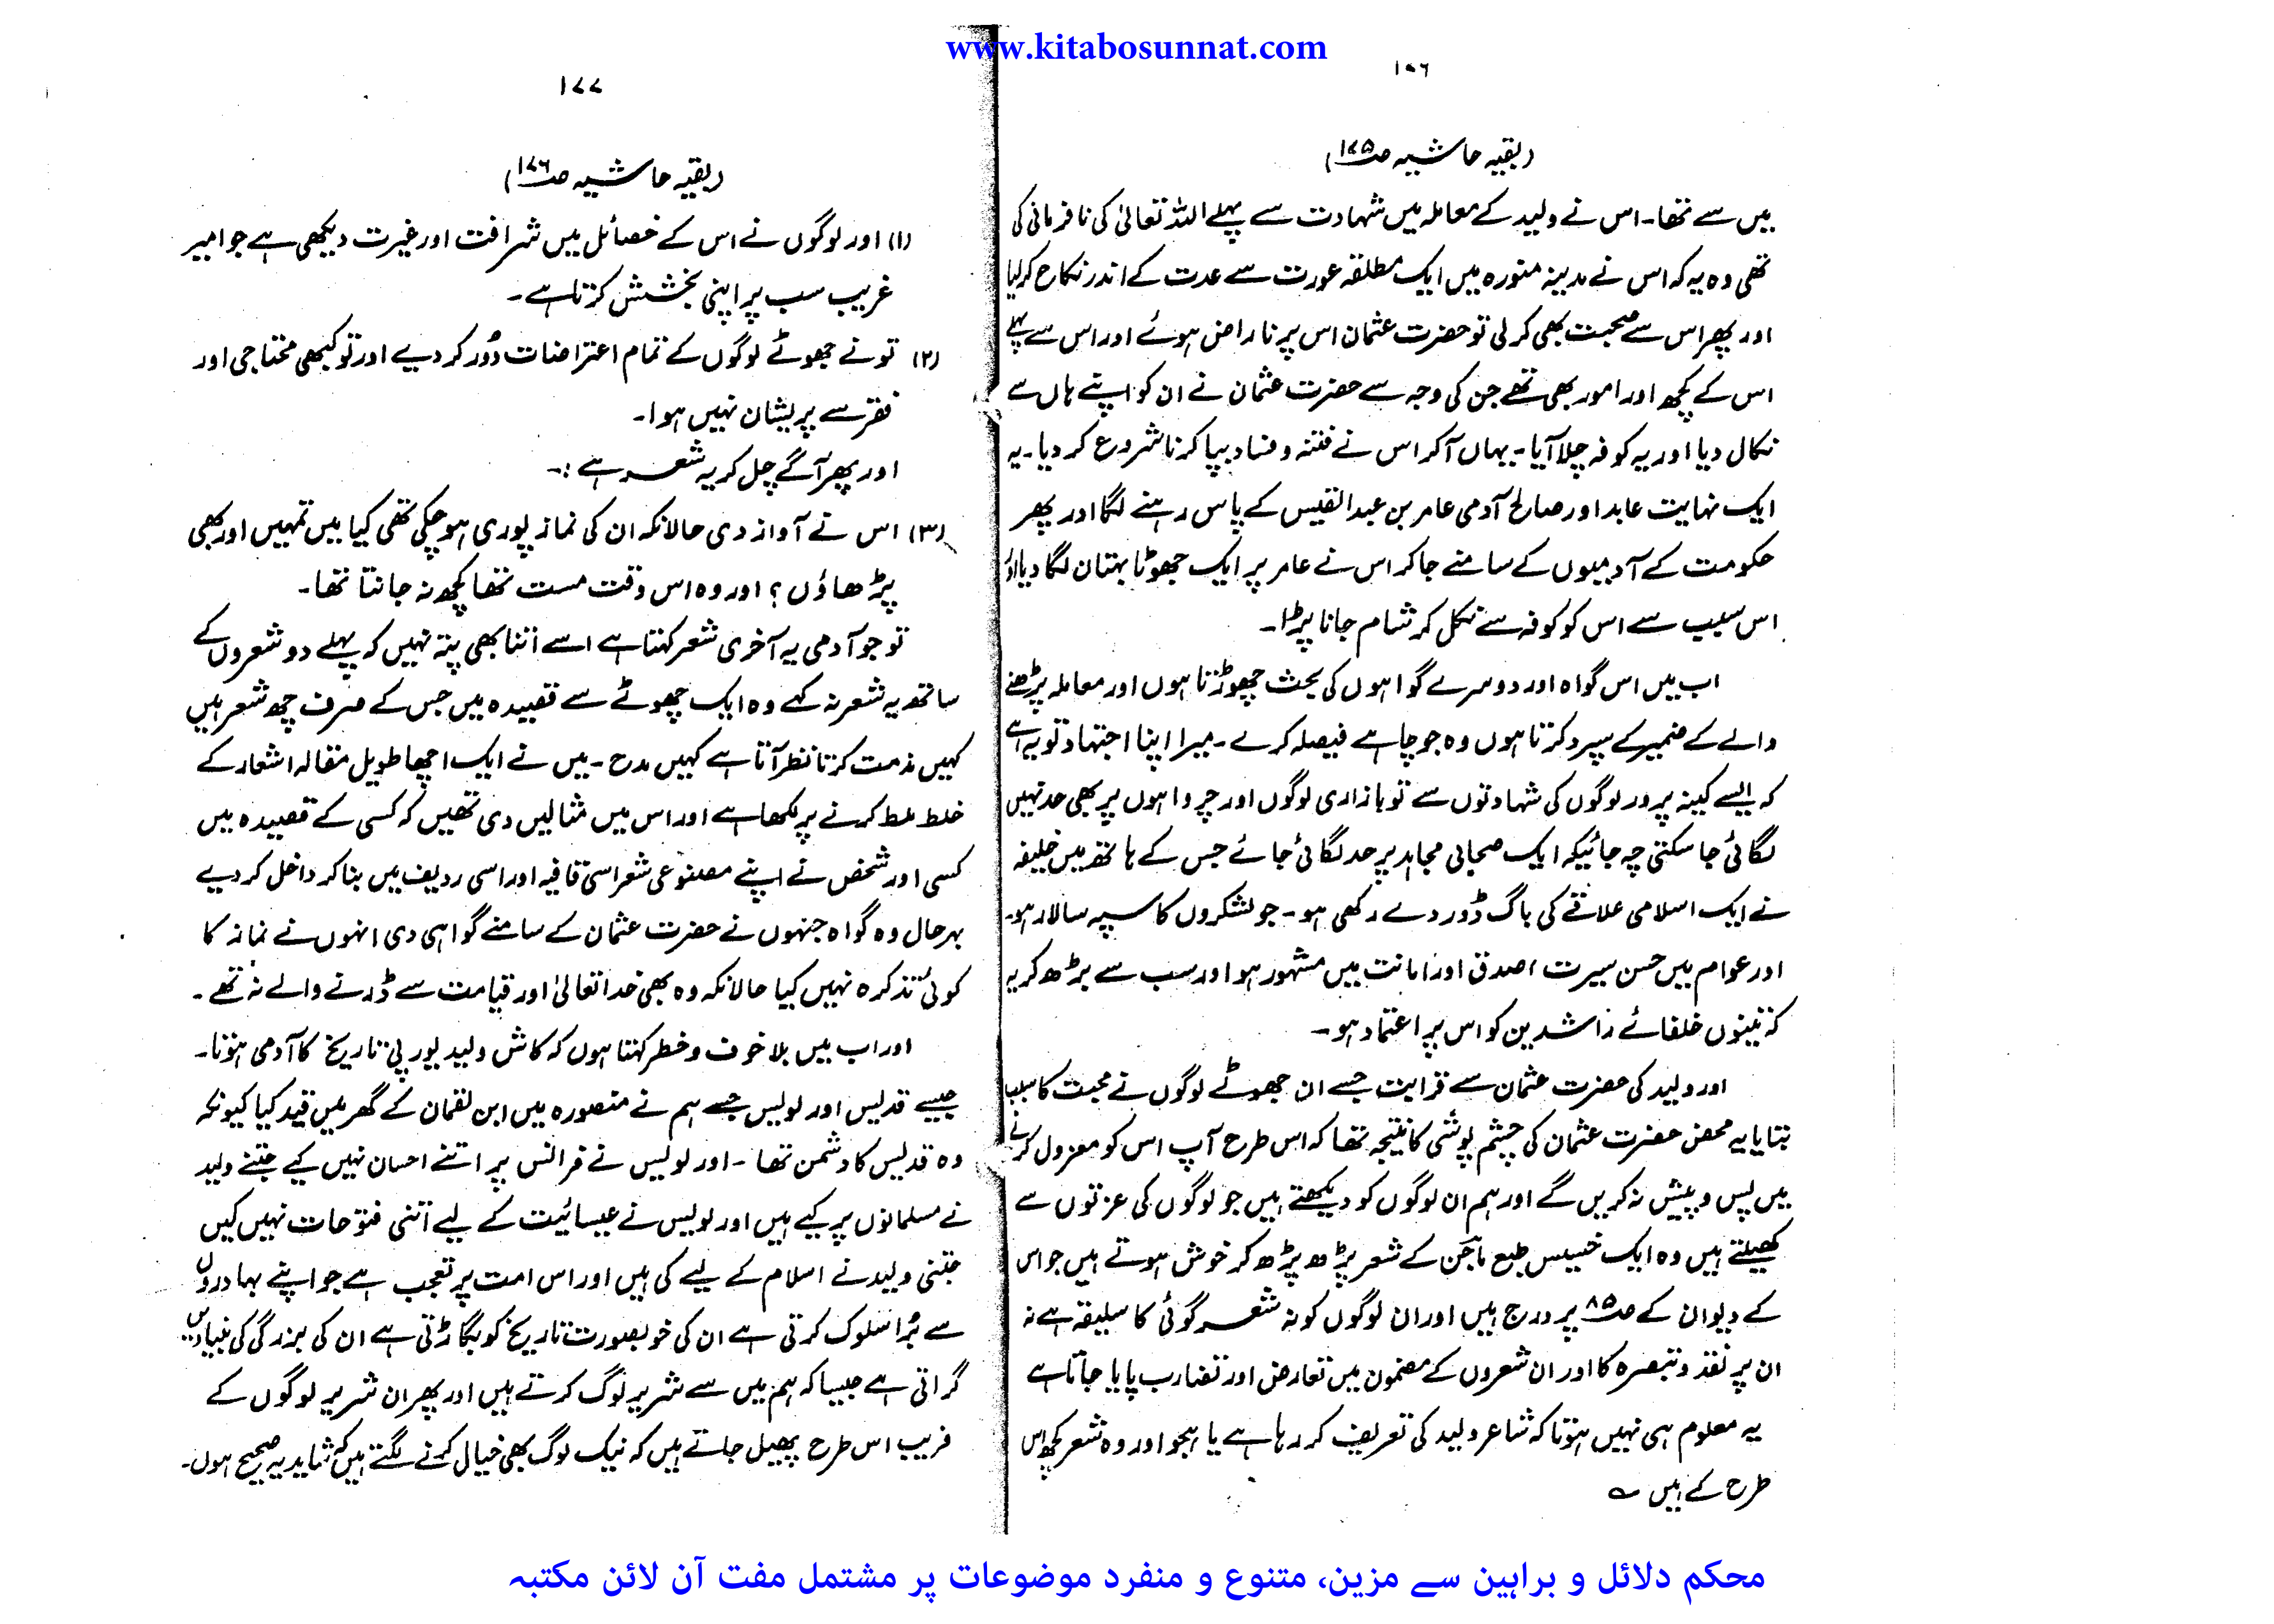 www.kitabosunnat.com
۱۷۶
(بقیہ حاشیہ ص۱۷۵)
میں سے تھا۔ اس نے ولید کے معاملہ میں شہادت سے پہلے اللہ تعالیٰ کی نافرمانی کی
تھی وہ یہ کہ اس نے مدینہ منورہ میں ایک مطلقہ عورت سے عدت کے اندر نکاح کر لیا
اور پھر اس سے صحبت بھی کر لی تو حضرت عثمان اس پر ناراض ہوئے اور اس سے پہلے
اس کے کچھ اور امور بھی تھے جن کی وجہ سے حضرت عثمان نے ان کو اپنے ہاں سے
نکال دیا اور یہ کوفہ چلا آیا۔ یہاں آکر اس نے فتنہ و فساد بپا کرنا شروع کر دیا۔ یہ
ایک نہایت عابد اور صالح آدمی عامر بن عبدالقیس کے پاس رہنے لگا اور پھر
حکومت کے آدمیوں کے سامنے جا کر اس نے عامر پر ایک جھوٹا بہتان لگا دیا اور
اس سبب سے اس کو کوفہ سے نکل کر شام جانا پڑا۔
اب میں اس گواہ اور دوسرے گواہوں کی بحث چھوڑتا ہوں اور معاملہ پڑھنے
والے کے ضمیر کے سپرد کرتا ہوں وہ جو چاہے فیصلہ کرے۔ میرا اپنا اجتہاد تو یہ ہے
کہ ایسے کینہ پرور لوگوں کی شہادتوں سے تو بازاری لوگوں اور چرواہوں پر بھی حد نہیں
لگائی جا سکتی چہ جائیکہ ایک صحابی مجاہد پر حد لگائی جائے جس کے ہاتھ میں خلیفہ
نے ایک اسلامی علاقے کی باگ ڈور دے رکھی ہو۔ جو لشکروں کا سپہ سالار ہو۔
اور عوام میں حسن سیرت، صدق اور امانت میں مشہور ہو اور سب سے بڑھ کر یہ
کہ تینوں خلفائے راشدین کو اس پر اعتماد ہو۔
اور ولید کی حضرت عثمان سے قرابت جسے ان جھوٹے لوگوں نے محبت کا سبب
بتایا یہ محض حضرت عثمان کی چشم پوشی کا نتیجہ تھا کہ اس طرح آپ اس کو معزول کرنے
میں پس و پیش نہ کریں گے اور ہم ان لوگوں کو دیکھتے ہیں جو لوگوں کی عزتوں سے
کھیلتے ہیں وہ ایک خسیس طبع ماجن کے شعر پڑھ پڑھ کر خوش ہوتے ہیں جو اس
کے دیوان کے ص۸۵ پر درج ہیں اور ان لوگوں کو نہ شعر گوئی کا سلیقہ ہے نہ
ان پر نقد و تبصرہ کا اور ان شعروں کے مضمون میں تعارض اور تضارب پایا جاتا ہے
یہ معلوم ہی نہیں ہوتا کہ شاعر ولید کی تعریف کر رہا ہے یا ہجو اور وہ شعر کچھ اس
طرح کے ہیں ؎
۱۷۷
(بقیہ حاشیہ ص۱۷۶)
(۱) اور لوگوں نے اس کے خصائل میں شرافت اور غیرت دیکھی ہے جو امیر
غریب سب پر اپنی بخشش کرتا ہے۔
(۲) تو نے جھوٹے لوگوں کے تمام اعتراضات دُور کر دیے اور تو کبھی محتاجی اور
فقر سے پریشان نہیں ہوا۔
اور پھر آگے چل کر یہ شعر ہے :۔
(۳) اس نے آواز دی حالانکہ ان کی نماز پوری ہو چکی تھی کیا میں تمہیں اور بھی
پڑھاؤں؟ اور وہ اس وقت مست تھا کچھ نہ جانتا تھا۔
تو جو آدمی یہ آخری شعر کہتا ہے اسے اتنا بھی پتہ نہیں کہ پہلے دو شعروں کے
ساتھ یہ شعر نہ کہے وہ ایک چھوٹے سے قصیدہ میں جس کے صرف چھ شعر ہیں
کہیں مذمت کرتا نظر آتا ہے کہیں مدح۔ میں نے ایک اچھا طویل مقالہ اشعار کے
خلط ملط کرنے پر لکھا ہے اور اس میں مثالیں دی تھیں کہ کسی کے قصیدہ میں
کسی اور شخص نے اپنے مصنوعی شعر اسی قافیہ اور اسی ردیف میں بنا کر داخل کر دیے
بہر حال وہ گواہ جنہوں نے حضرت عثمان کے سامنے گواہی دی انہوں نے نماز کا
کوئی تذکرہ نہیں کیا حالانکہ وہ بھی خدا تعالیٰ اور قیامت سے ڈرنے والے نہ تھے۔
اور اب میں بلا خوف و خطر کہتا ہوں کہ کاش ولید یورپی تاریخ کا آدمی ہوتا۔
جیسے قدیس اور لویس جسے ہم نے منصورہ میں ابن لقمان کے گھر میں قید کیا کیونکہ
وہ قدیس کا دشمن تھا۔ اور لویس نے فرانس پر اتنے احسان نہیں کیے جتنے ولید
نے مسلمانوں پر کیے ہیں اور لویس نے عیسائیت کے لیے اتنی فتوحات نہیں کیں
جتنی ولید نے اسلام کے لیے کی ہیں اور اس امت پر تعجب ہے جو اپنے بہادروں
سے بُرا سلوک کرتی ہے ان کی خوبصورت تاریخ کو بگاڑتی ہے ان کی بزرگی کی بنیادیں
گراتی ہے جیسا کہ ہم میں سے شریر لوگ کرتے ہیں اور پھر ان شریر لوگوں کے
فریب اس طرح پھیل جاتے ہیں کہ نیک لوگ بھی خیال کرنے لگتے ہیں کہ شاید یہ صحیح ہوں۔
محکم دلائل و براہین سے مزین، متنوع و منفرد موضوعات پر مشتمل مفت آن لائن مکتبہ